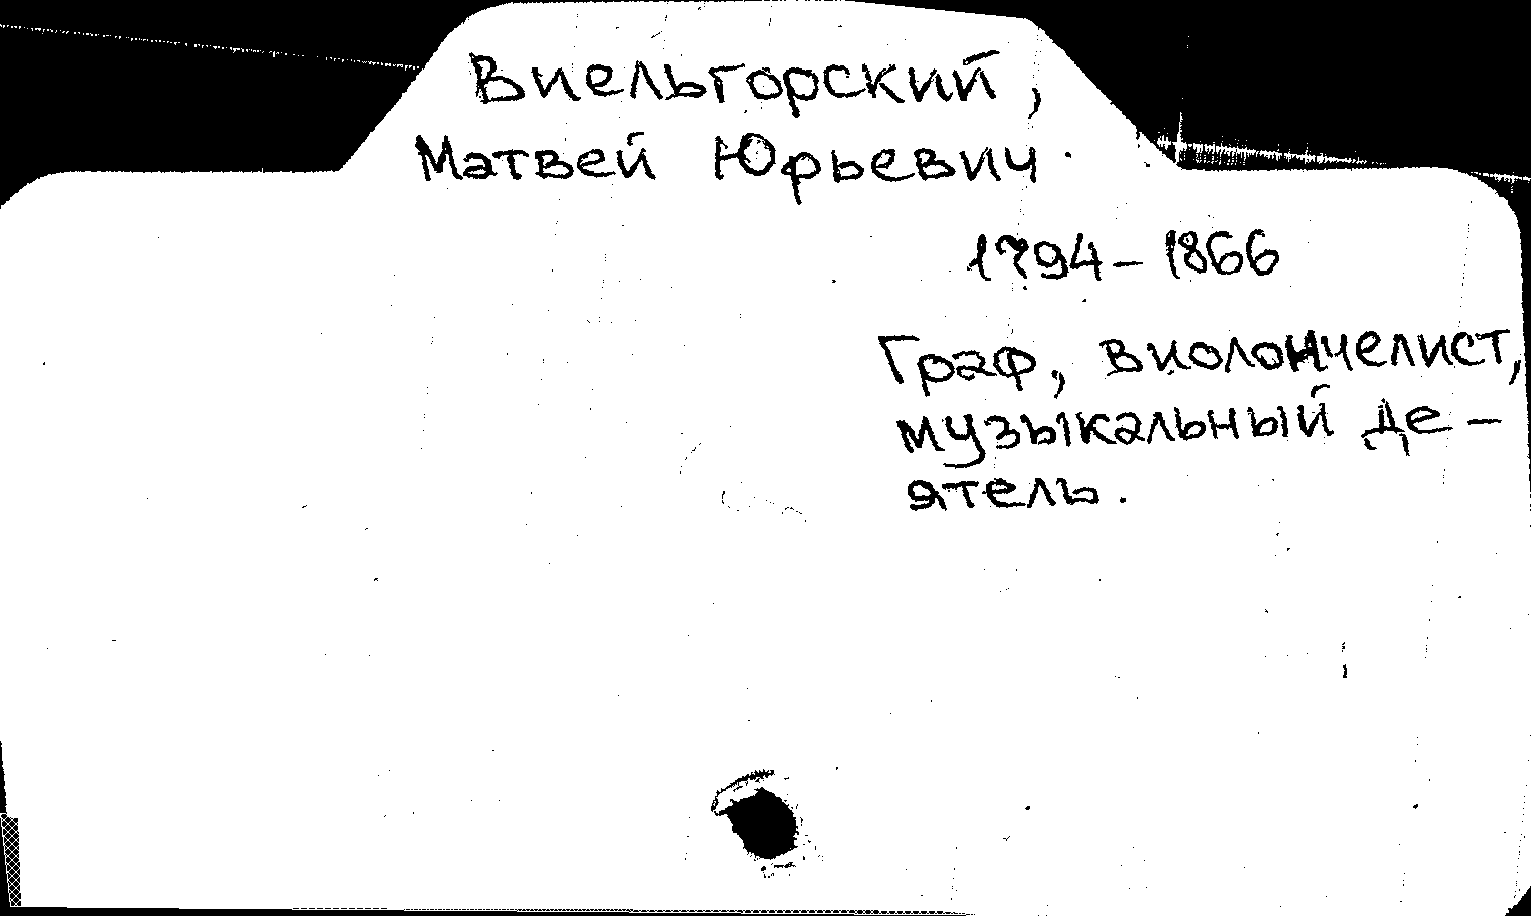 Виельгорский,
Матвей Юрьевич.
1794-1866
Граф, виолончелист,
музыкальный де-
ятель.